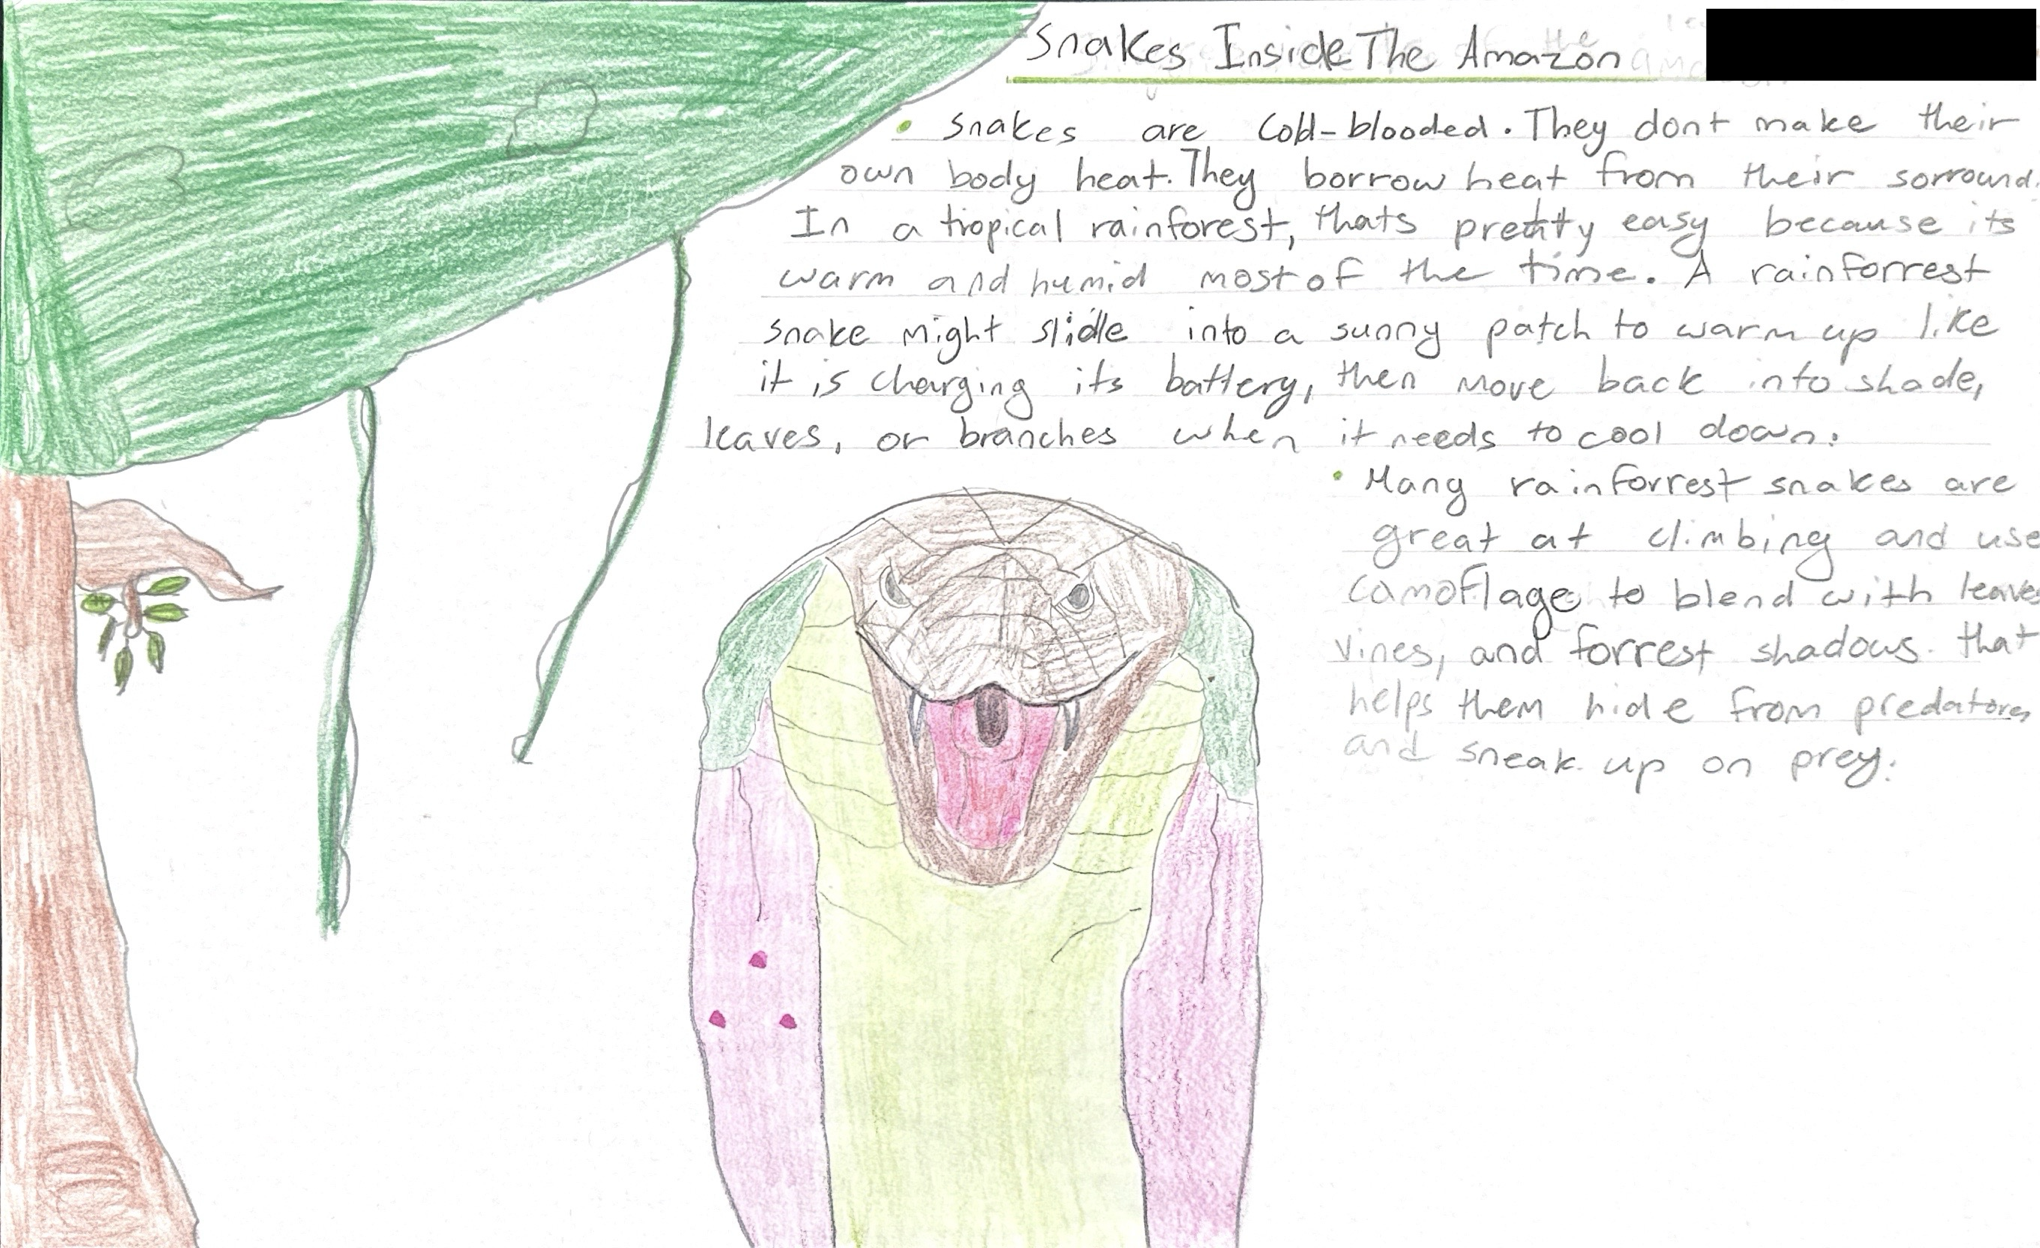 Snakes Inside The Amazon
• Snakes are cold-blooded. They dont make their
own body heat. They borrow heat from their sorround.
In a tropical rainforest, thats pretty easy because its
warm and humid most of the time. A rainforrest
snake might slidle into a sunny patch to warm up like
it is charging its battery, then move back into shade,
leaves, or branches when it needs to cool down.
• Many rainforrest snakes are
great at climbing and use
camoflage to blend with leaves
vines, and forrest shadows. that
helps them hide from predators,
and sneak up on prey.